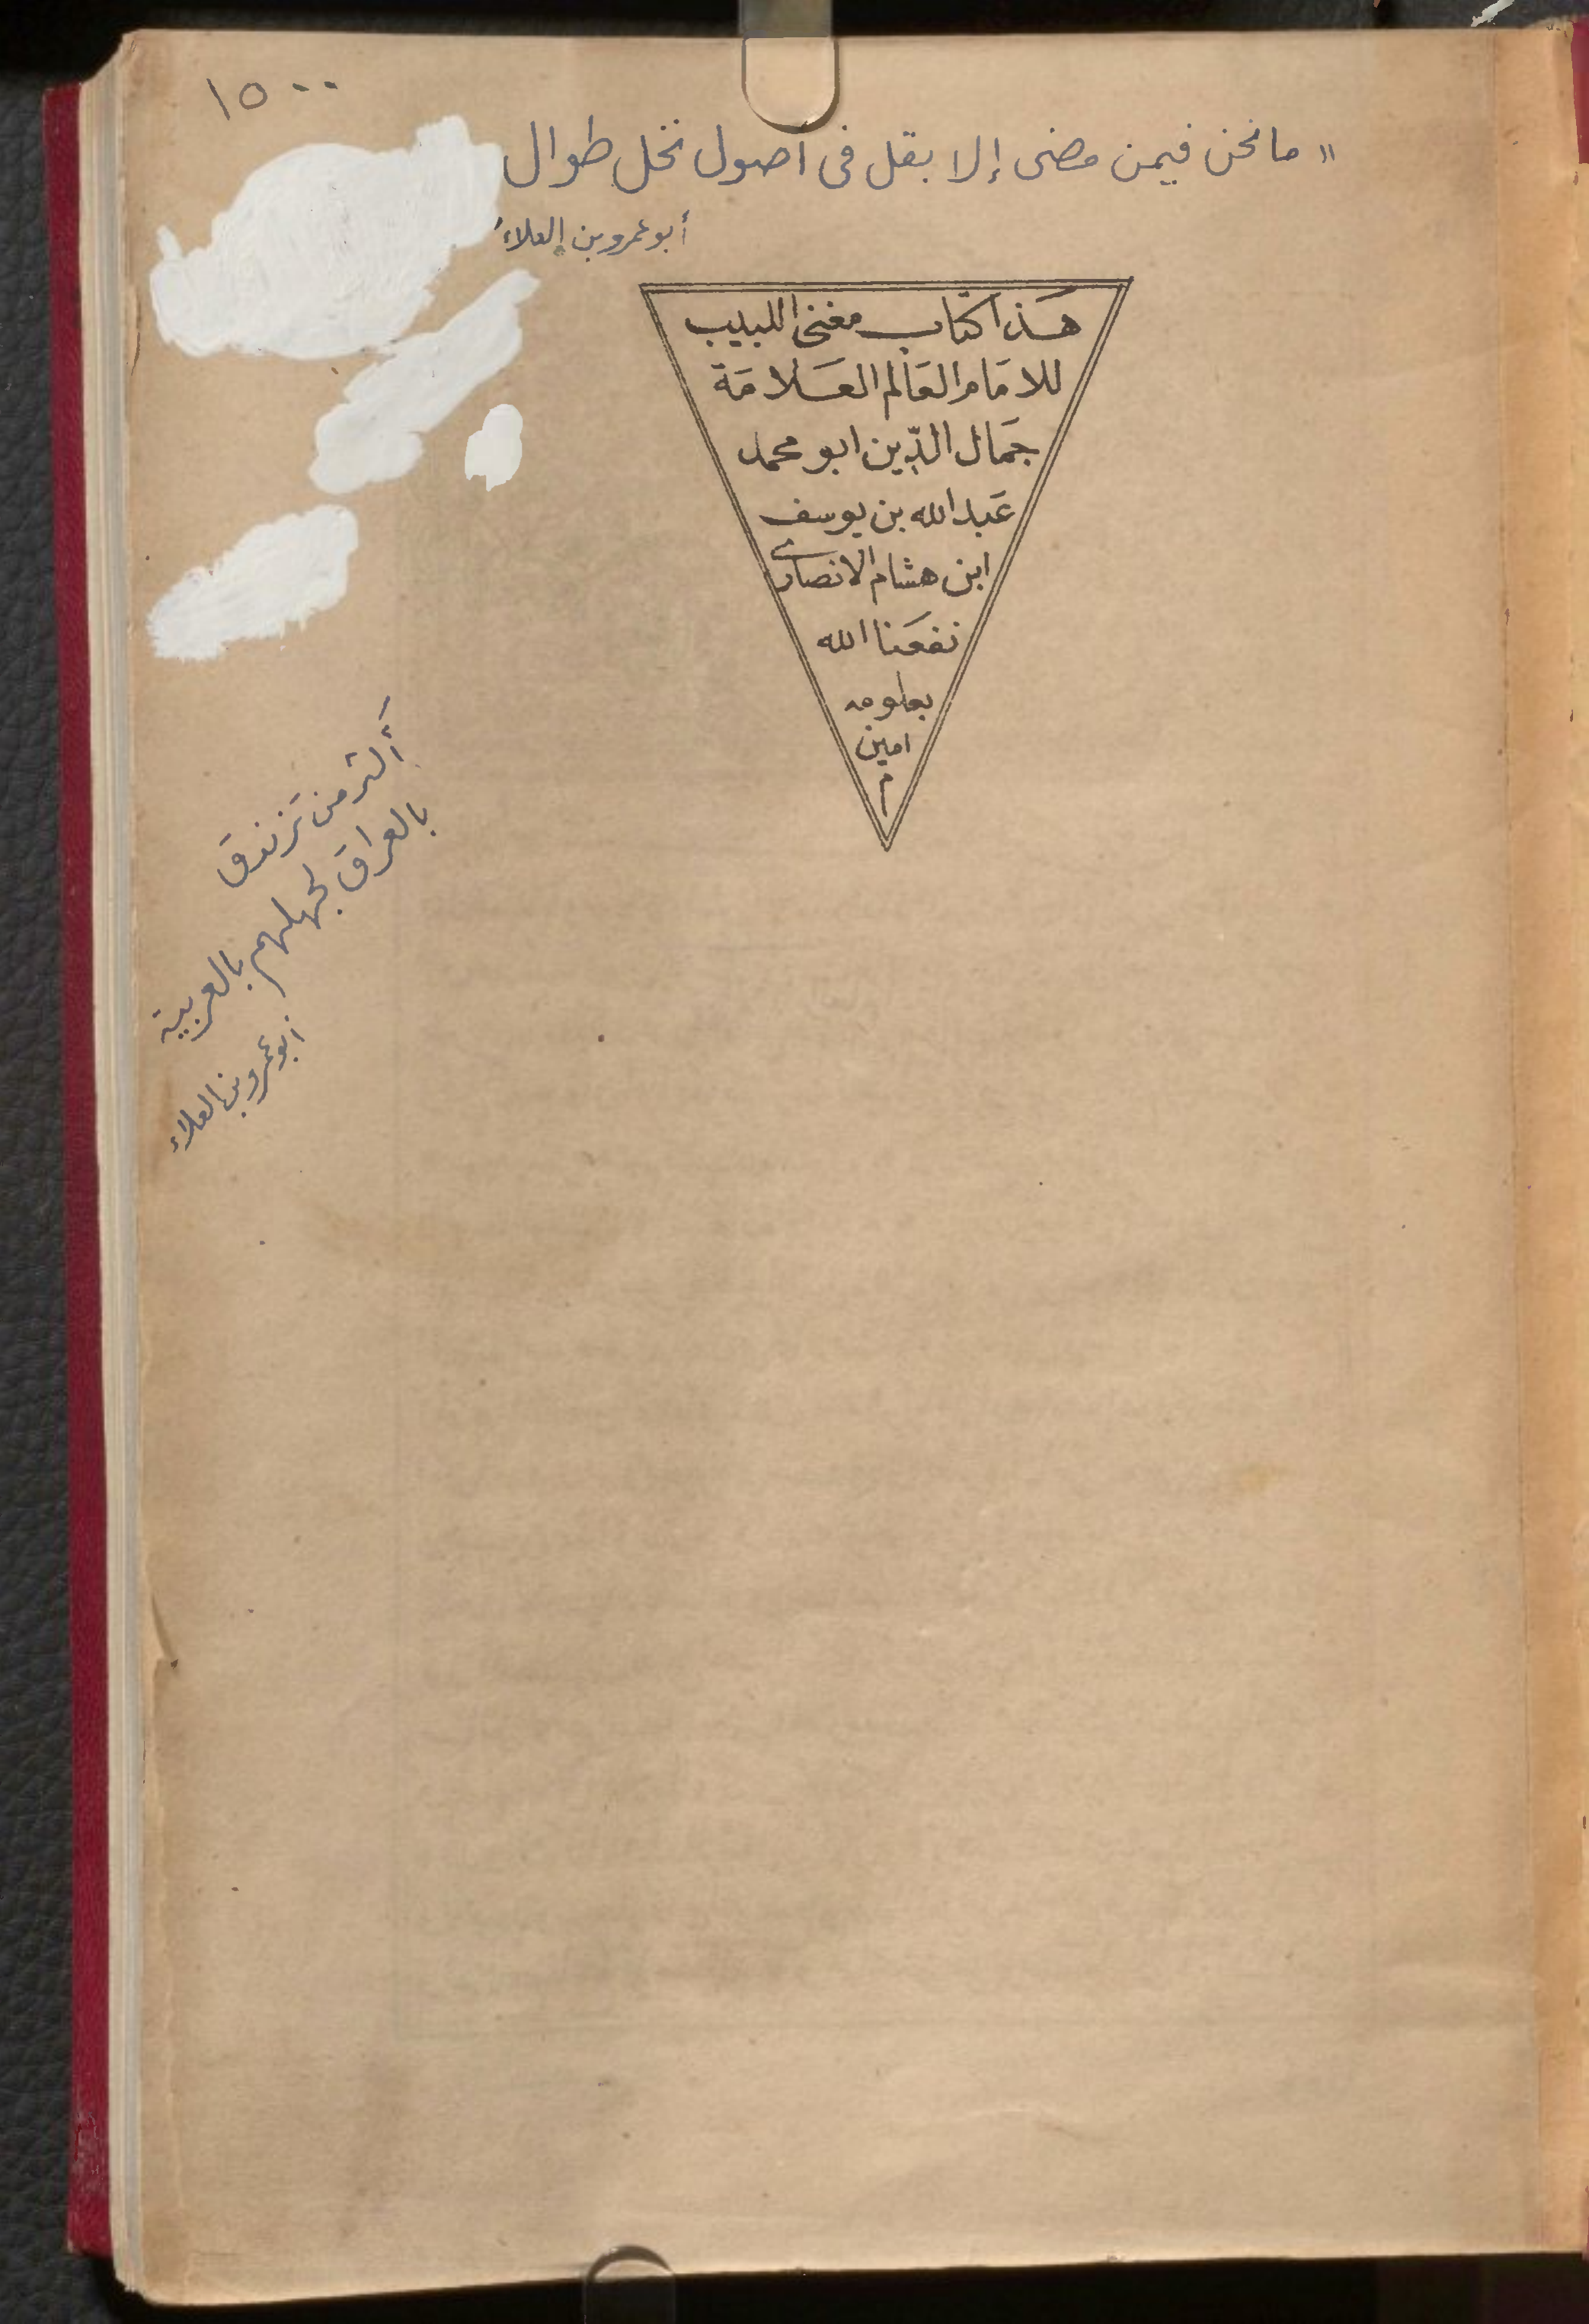 ١٥٠٠
" ما نحن فيمن مضى إلا بقل فى أصول نخل طوال
أبو عمرو بن العلاء
هَذا كتاب مغنى اللبيب
للامَام العَالم العَلامَة
جمَال الدّين ابو محمد
عَبد الله بن يوسف
ابن هشام الانصارى
نفعَنا الله
بعلومه
امين
م
أكثر من تزندق
بالعراق لجهلهم بالعربية
أبو عمرو بن العلاء